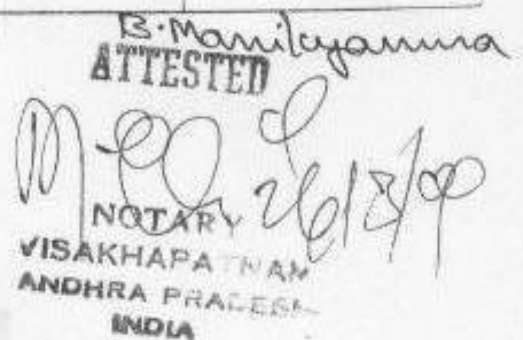 B. Manikyamma
ATTESTED
NOTARY
VISAKHAPATNAM
ANDHRA PRADESH
INDIA